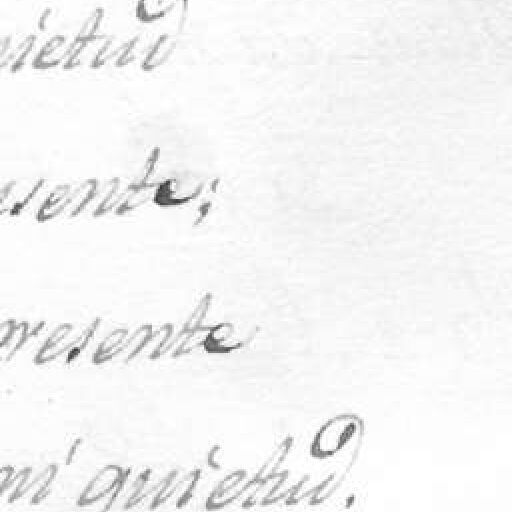 uietud
usente;
presente
mi quietud.